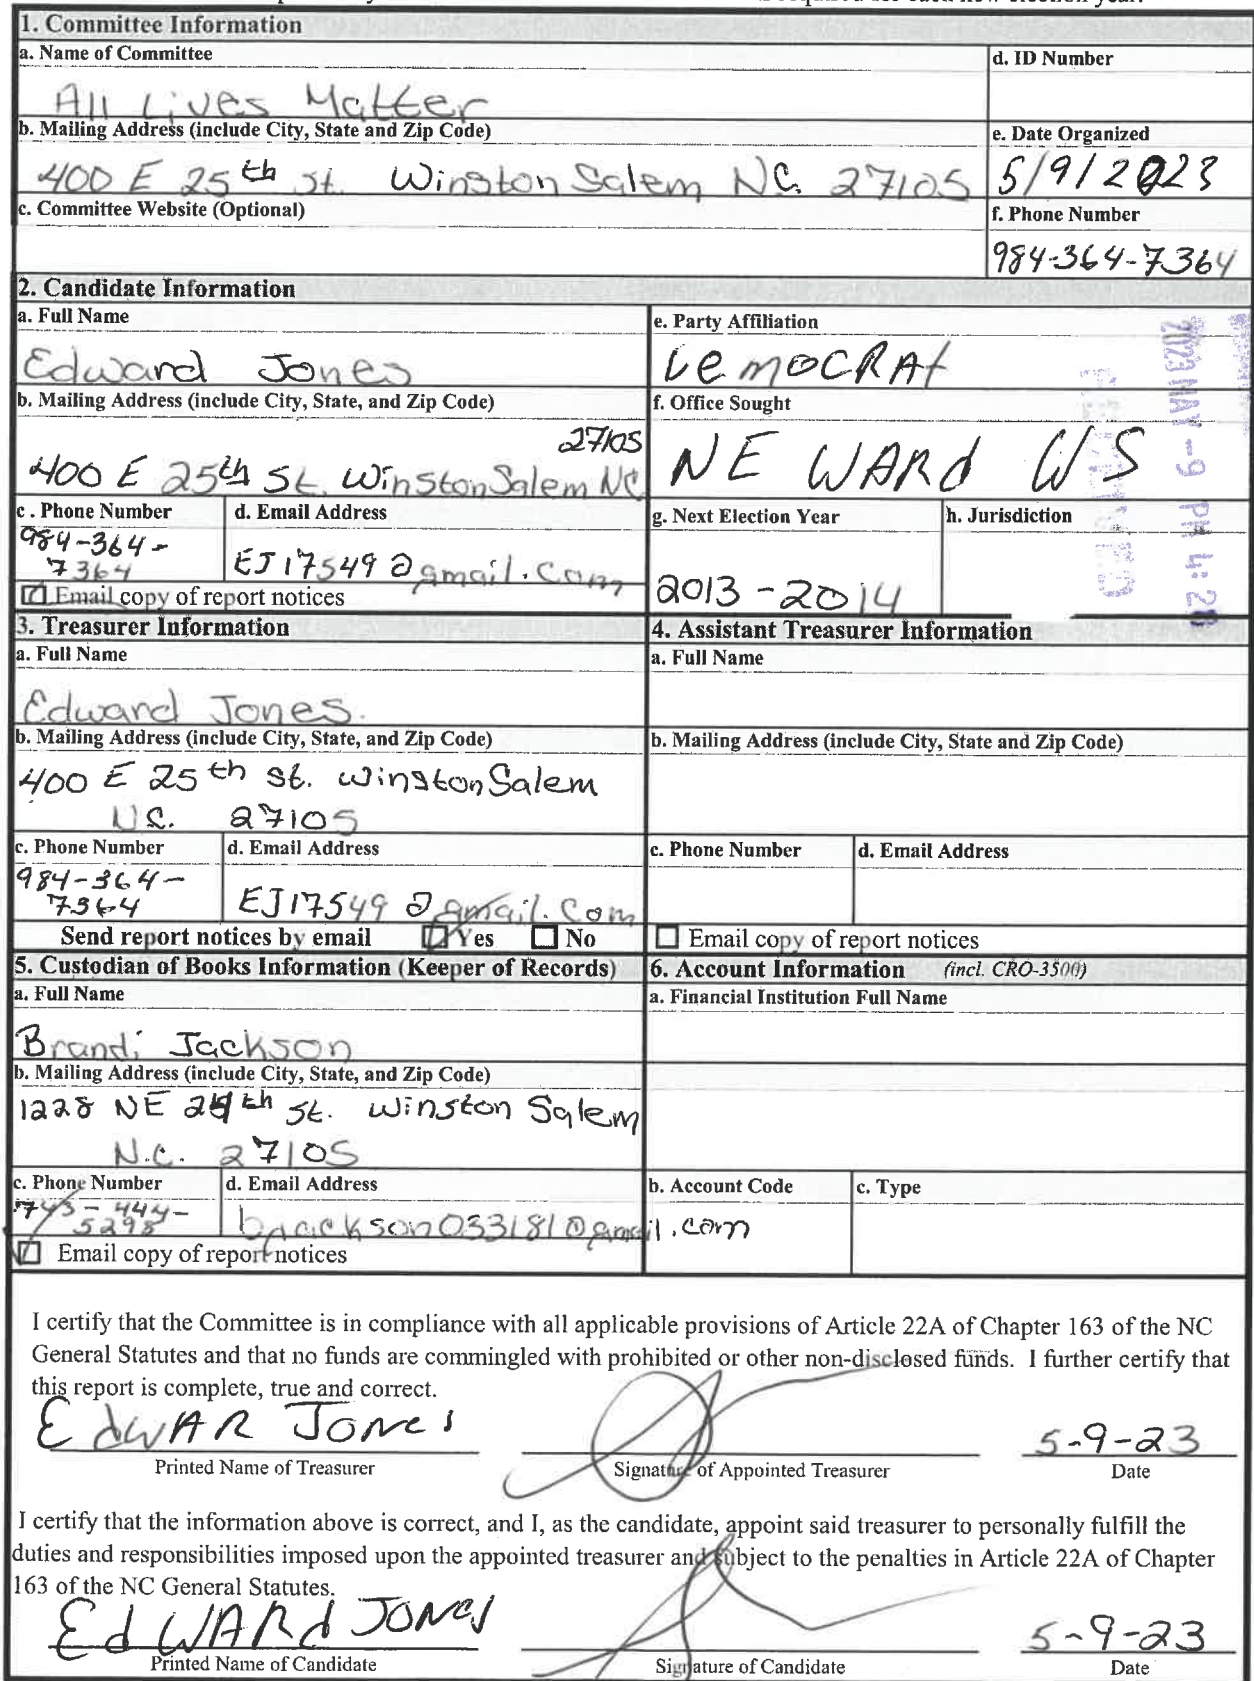 1. Committee Information
a. Name of Committee
d. ID Number
All Lives Matter
b. Mailing Address (include City, State and Zip Code)
e. Date Organized
400 E 25th st. Winston Salem NC. 27105
5/9/2023
c. Committee Website (Optional)
f. Phone Number
984-364-7364
2. Candidate Information
a. Full Name
Edward Jones
b. Mailing Address (include City, State, and Zip Code)
27105
400 E 25th St. Winston Salem NC
c . Phone Number
d. Email Address
984-364-
7364
EJ17549@gmail.com
Email copy of report notices
e. Party Affiliation
DemOCRAt
f. Office Sought
NE WARd WS
g. Next Election Year
h. Jurisdiction
2013-2014
2023 MAY -9 PM 4:28
3. Treasurer Information
a. Full Name
Edward Jones.
b. Mailing Address (include City, State, and Zip Code)
400 E 25th st. Winston Salem
NC. 27105
c. Phone Number
d. Email Address
984-364-
7364
EJ17549@gmail.com
Send report notices by email Yes No
4. Assistant Treasurer Information
a. Full Name
b. Mailing Address (include City, State and Zip Code)
c. Phone Number
d. Email Address
Email copy of report notices
5. Custodian of Books Information (Keeper of Records)
a. Full Name
Brandi Jackson
b. Mailing Address (include City, State, and Zip Code)
1228 NE 24th st. Winston Salem
N.C. 27105
c. Phone Number
d. Email Address
743-444-
5298
bjackson033181@gmail.com
Email copy of report notices
6. Account Information (incl. CRO-3500)
a. Financial Institution Full Name
b. Account Code
c. Type
I certify that the Committee is in compliance with all applicable provisions of Article 22A of Chapter 163 of the NC
General Statutes and that no funds are commingled with prohibited or other non-disclosed funds. I further certify that
this report is complete, true and correct.
EdWAR JONes
5-9-23
Printed Name of Treasurer
Signature of Appointed Treasurer
Date
I certify that the information above is correct, and I, as the candidate, appoint said treasurer to personally fulfill the
duties and responsibilities imposed upon the appointed treasurer and subject to the penalties in Article 22A of Chapter
163 of the NC General Statutes.
EdWARd JONes
5-9-23
Printed Name of Candidate
Signature of Candidate
Date